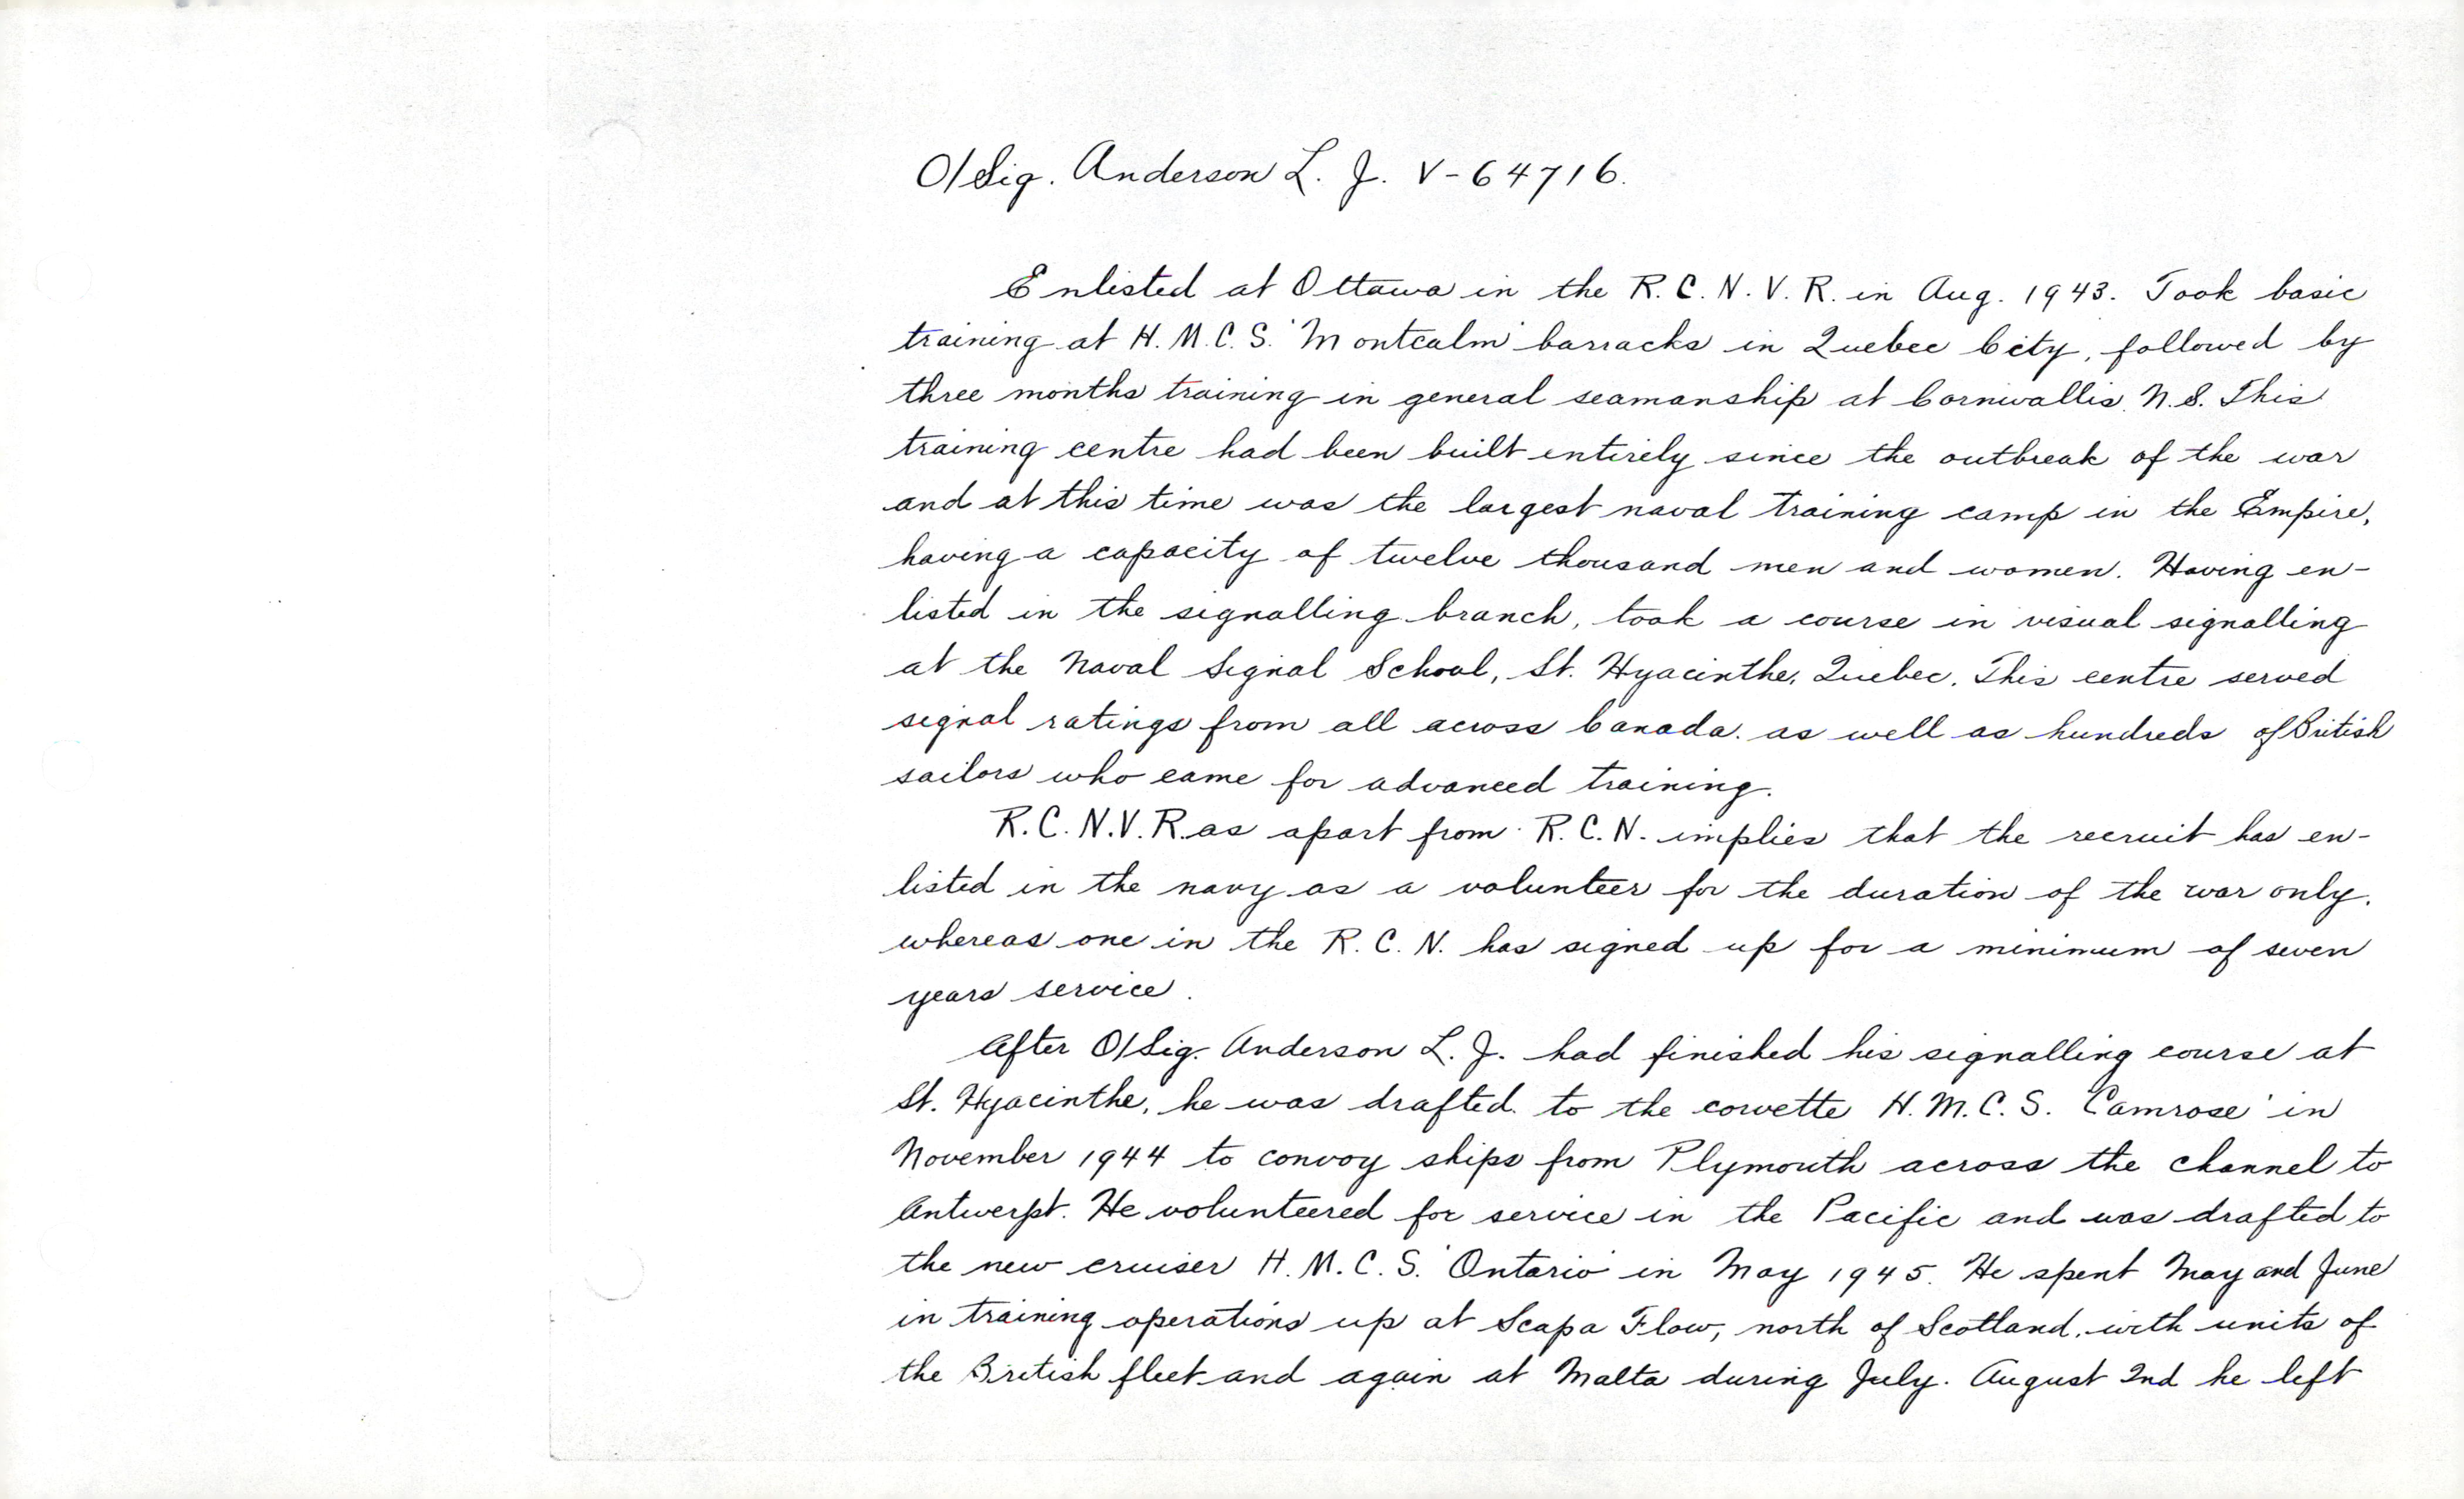 O/Sig. Anderson L. J. V-64716.
Enlisted at Ottawa in the R.C.N.V.R. in Aug. 1943. Took basic
training at H.M.C.S. 'Montcalm' barracks in Quebec City, followed by
three months training in general seamanship at Cornwallis, N.S. This
training centre had been built entirely since the outbreak of the war
and at this time was the largest naval training camp in the Empire,
having a capacity of twelve thousand men and women. Having en-
listed in the signalling branch, took a course in visual signalling
at the Naval Signal School, St. Hyacinthe, Quebec. This centre served
signal ratings from all across Canada. as well as hundreds of British
sailors who came for advanced training.
R.C.N.V.R. as apart from R.C.N. implies that the recruit has en-
listed in the navy as a volunteer for the duration of the war only,
whereas one in the R.C.N. has signed up for a minimum of seven
years service.
After O/Sig. Anderson L. J. had finished his signalling course at
St. Hyacinthe, he was drafted to the corvette H.M.C.S. 'Camrose' in
November 1944 to convoy ships from Plymouth across the channel to
Antwerpt. He volunteered for service in the Pacific and was drafted to
the new cruiser H.M.C.S. 'Ontario' in May 1945. He spent May and June
in training operations up at Scapa Flow, north of Scotland, with units of
the British fleet and again at Malta during July. August 2nd he left